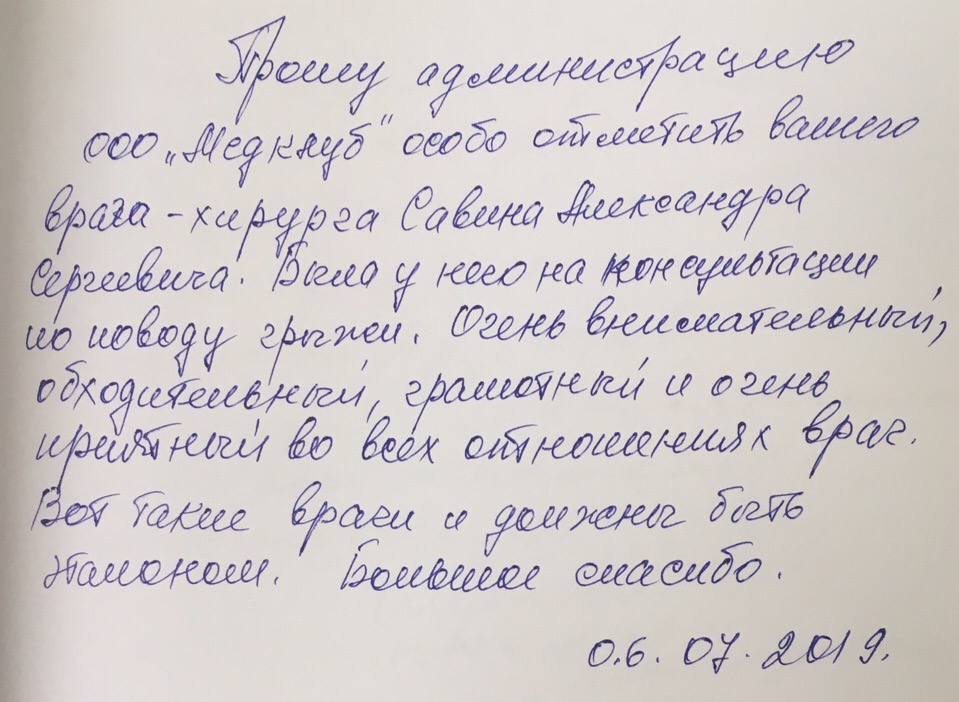 Прошу администрацию
ООО „Медклуб" особо отметить вашего
врача - хирурга Савина Александра
Сергеевича. Была у него на консультации
по поводу грыжи. Очень внимательный,
обходительный, грамотный и очень
приятный во всех отношениях врач.
Вот такие врачи и должны быть
эталоном. Большое спасибо.
0.6. 07. 2019.